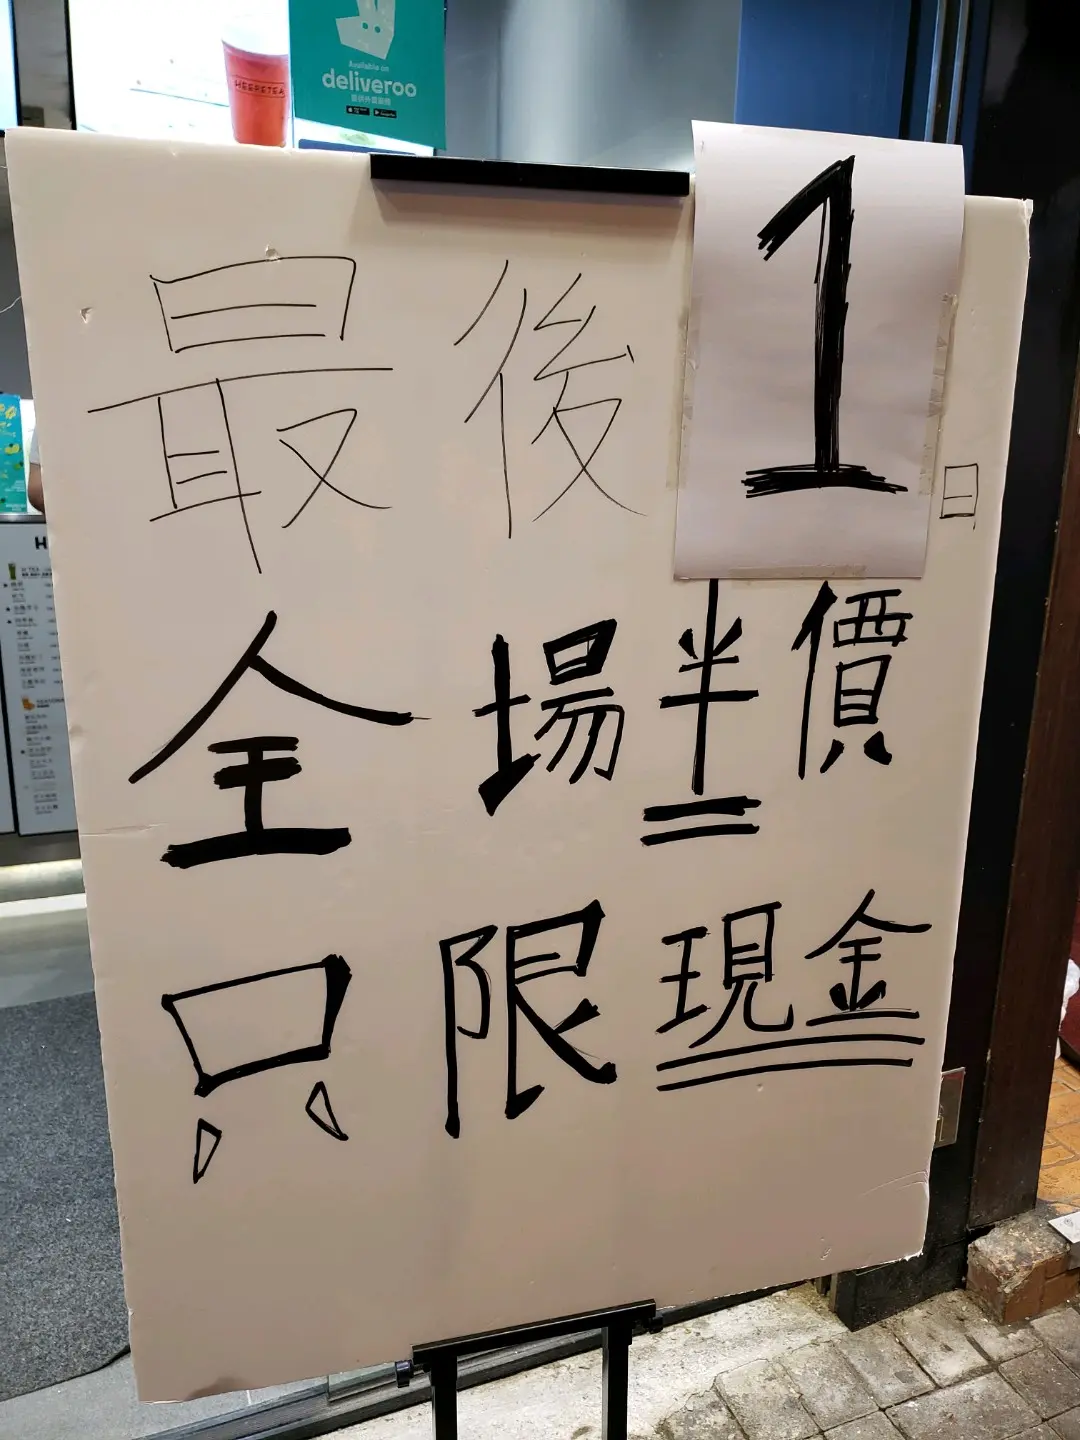 HEERETEA
Available on
deliveroo
最後1日
全場半價
只限現金